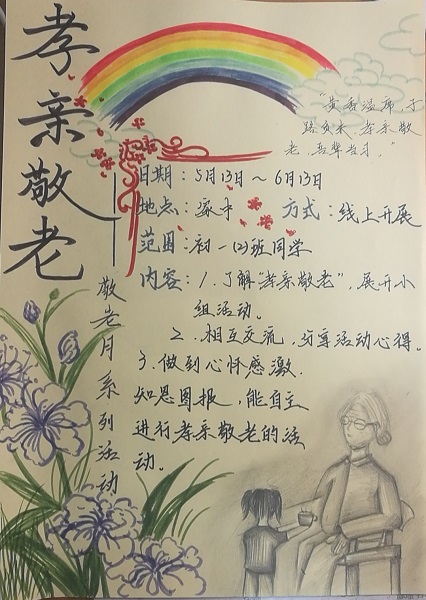 孝亲敬老
敬老月系列活动
“黄香温席,子
路负米,孝亲敬
老,吾辈当习。”
日期:5月13日~6月13日
地点:家中 方式:线上开展
范围:初一(2)班同学
内容:1.了解“孝亲敬老”,展开小
组活动。
2.相互交流,分享活动心得。
3.做到心怀感激.
知恩图报,能自主
进行孝亲敬老的活
动。